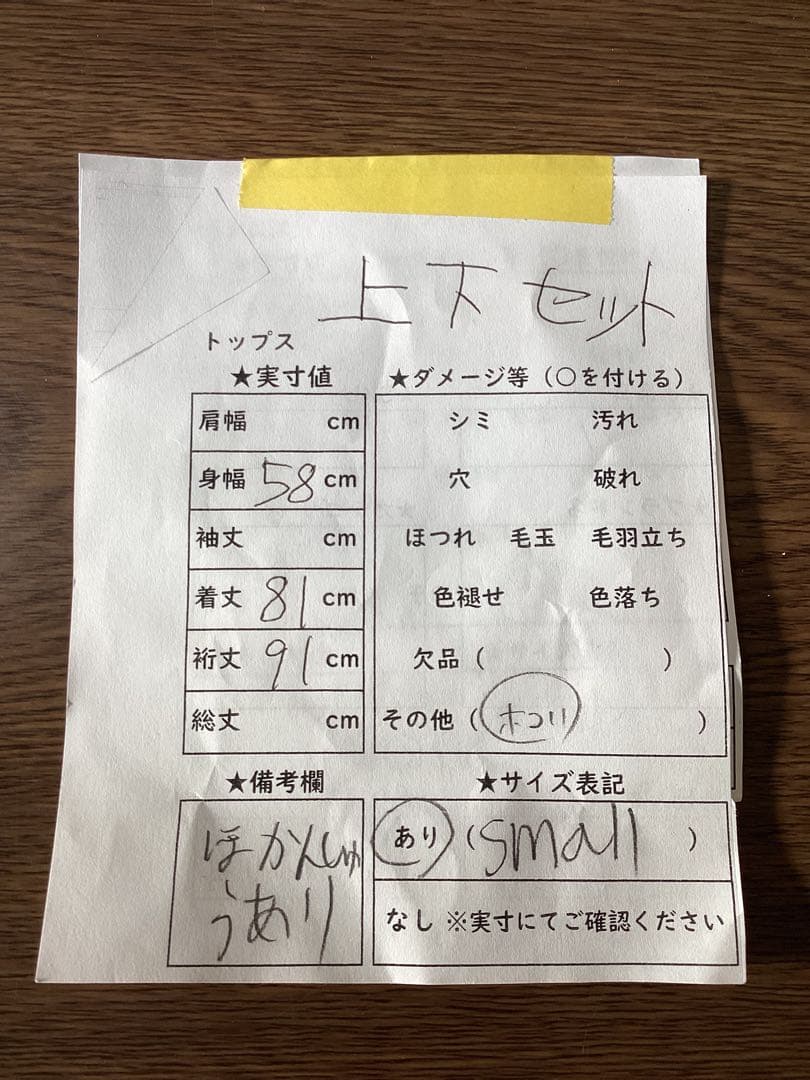 上下セット
トップス
★実寸値
肩幅 cm
身幅 58 cm
袖丈 cm
着丈 81 cm
裄丈 91 cm
総丈 cm
★ダメージ等（○を付ける）
シミ 汚れ
穴 破れ
ほつれ 毛玉 毛羽立ち
色褪せ 色落ち
欠品（ ）
その他（ホコリ ）
★備考欄
ほかんしゅ
うあり
★サイズ表記
あり（small ）
なし ※実寸にてご確認ください